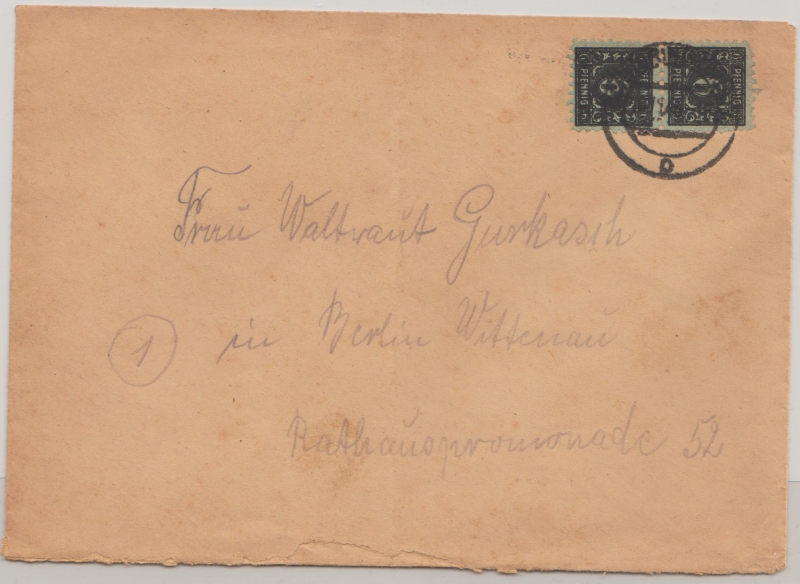 PFENNIG PFENNIG
6
b
Frau Waltraut Gurkasch
1 in Berlin Wittenau
Rathauspromonade 52